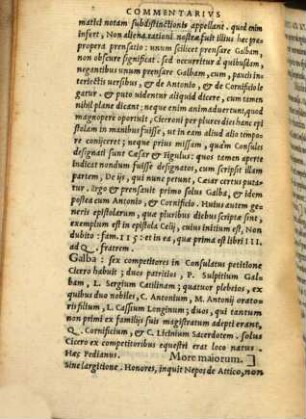 COMMENTARIVS
matici notam subdistinctionis appellant. quid enim
infert, Non aliena rationi nostræ fuit illius hæc præ
propera prensatio: unum scilicet prensare Galbam,
non obscure significat. sed occurritur à quibusdam,
negantibus unum prensare Galbam, cum, paucis in
teriectis versibus, & de Antonio, & de Cornificio le
gatur. & puto videntur aliquid dicere, cum tamen
nihil plane dicant; neque enim animaduertunt, quod
magnopere oportuit, Ciceroni per plures dies hanc epi
stolam in manibus fuisse, ut in eam aliud alio tempo
re conijceret; neque prius missam, quàm Consules
designati sunt Cæsar & Figulus: quos tamen aperte
indicat nondum fuisse designatos, cum scripsit illam
partem, De ijs, qui nunc petunt, Cæsar certus puta
tur. Ergo & prensauit primo solus Galba, & idem
postea cum Antonio, & Cornificio. Huius autem ge
neris epistolarum, quæ pluribus diebus scriptæ sint,
exemplum est in epistola Celij, cuius initium est, Non
dubito: fam. 115: et in ea, quæ prima est libri III.
ad Q. fratrem.
Galba: sex competitores in Consulatus petitione
Cicero habuit; duos patritios, P. Sulpitium Galu
bam, L. Sergium Catilinam; quatuor plebeios, ex
quibus duo nobiles, C. Antonium, M. Antonij orato
ris filium, L. Cassium Longinum; duos, qui tantum
non primi ex familijs suis magistratum adepti erant,
Q. Cornificium, & C. Licinium Sacerdotem. solus
Cicero ex competitoribus equestri erat loco natus.
Hæc Pedianus. More maiorum.
Sine largitione. Honores, inquit Nepos de Attico, non